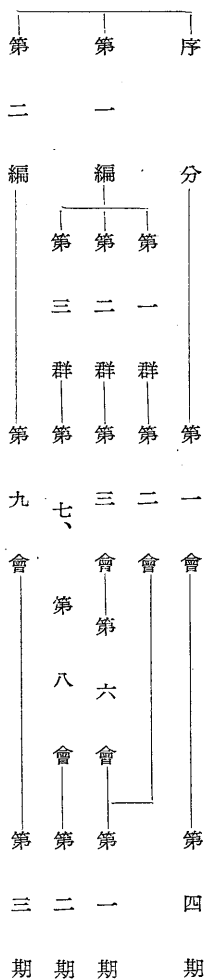 序分 第一會 第四期
第一編 第一群 第二會
第二群 第三會 第六會 第一期
第三群 第七、第八會 第二期
第二編 第九會 第三期